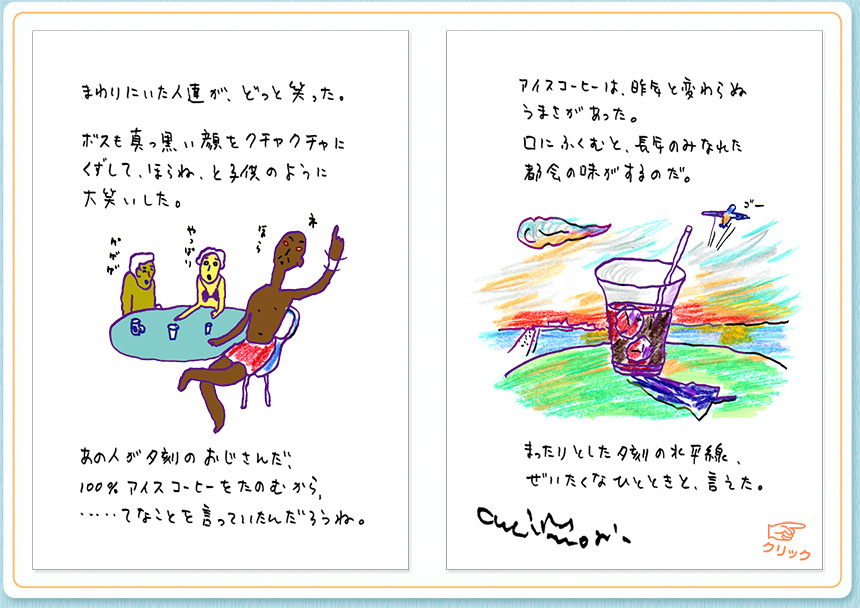 まわりにいた人達が、どっと笑った。
ボスも真っ黒い顔をクチャクチャに
くずして、ほらね、と子供のように
大笑いした。
ゲゲゲ
やっぱり
ほら
ネ
あの人が夕刻のおじさんだ、
100%アイスコーヒーをたのむから、
……てなことを言っていたんだろうね。
アイスコーヒーは、昨年と変わらぬ
うまさがあった。
口にふくむと、長年のみなれた
都会の味がするのだ。
ゴー
まったりとした夕刻の水平線、
ぜいたくなひとときと、言えた。
クリック